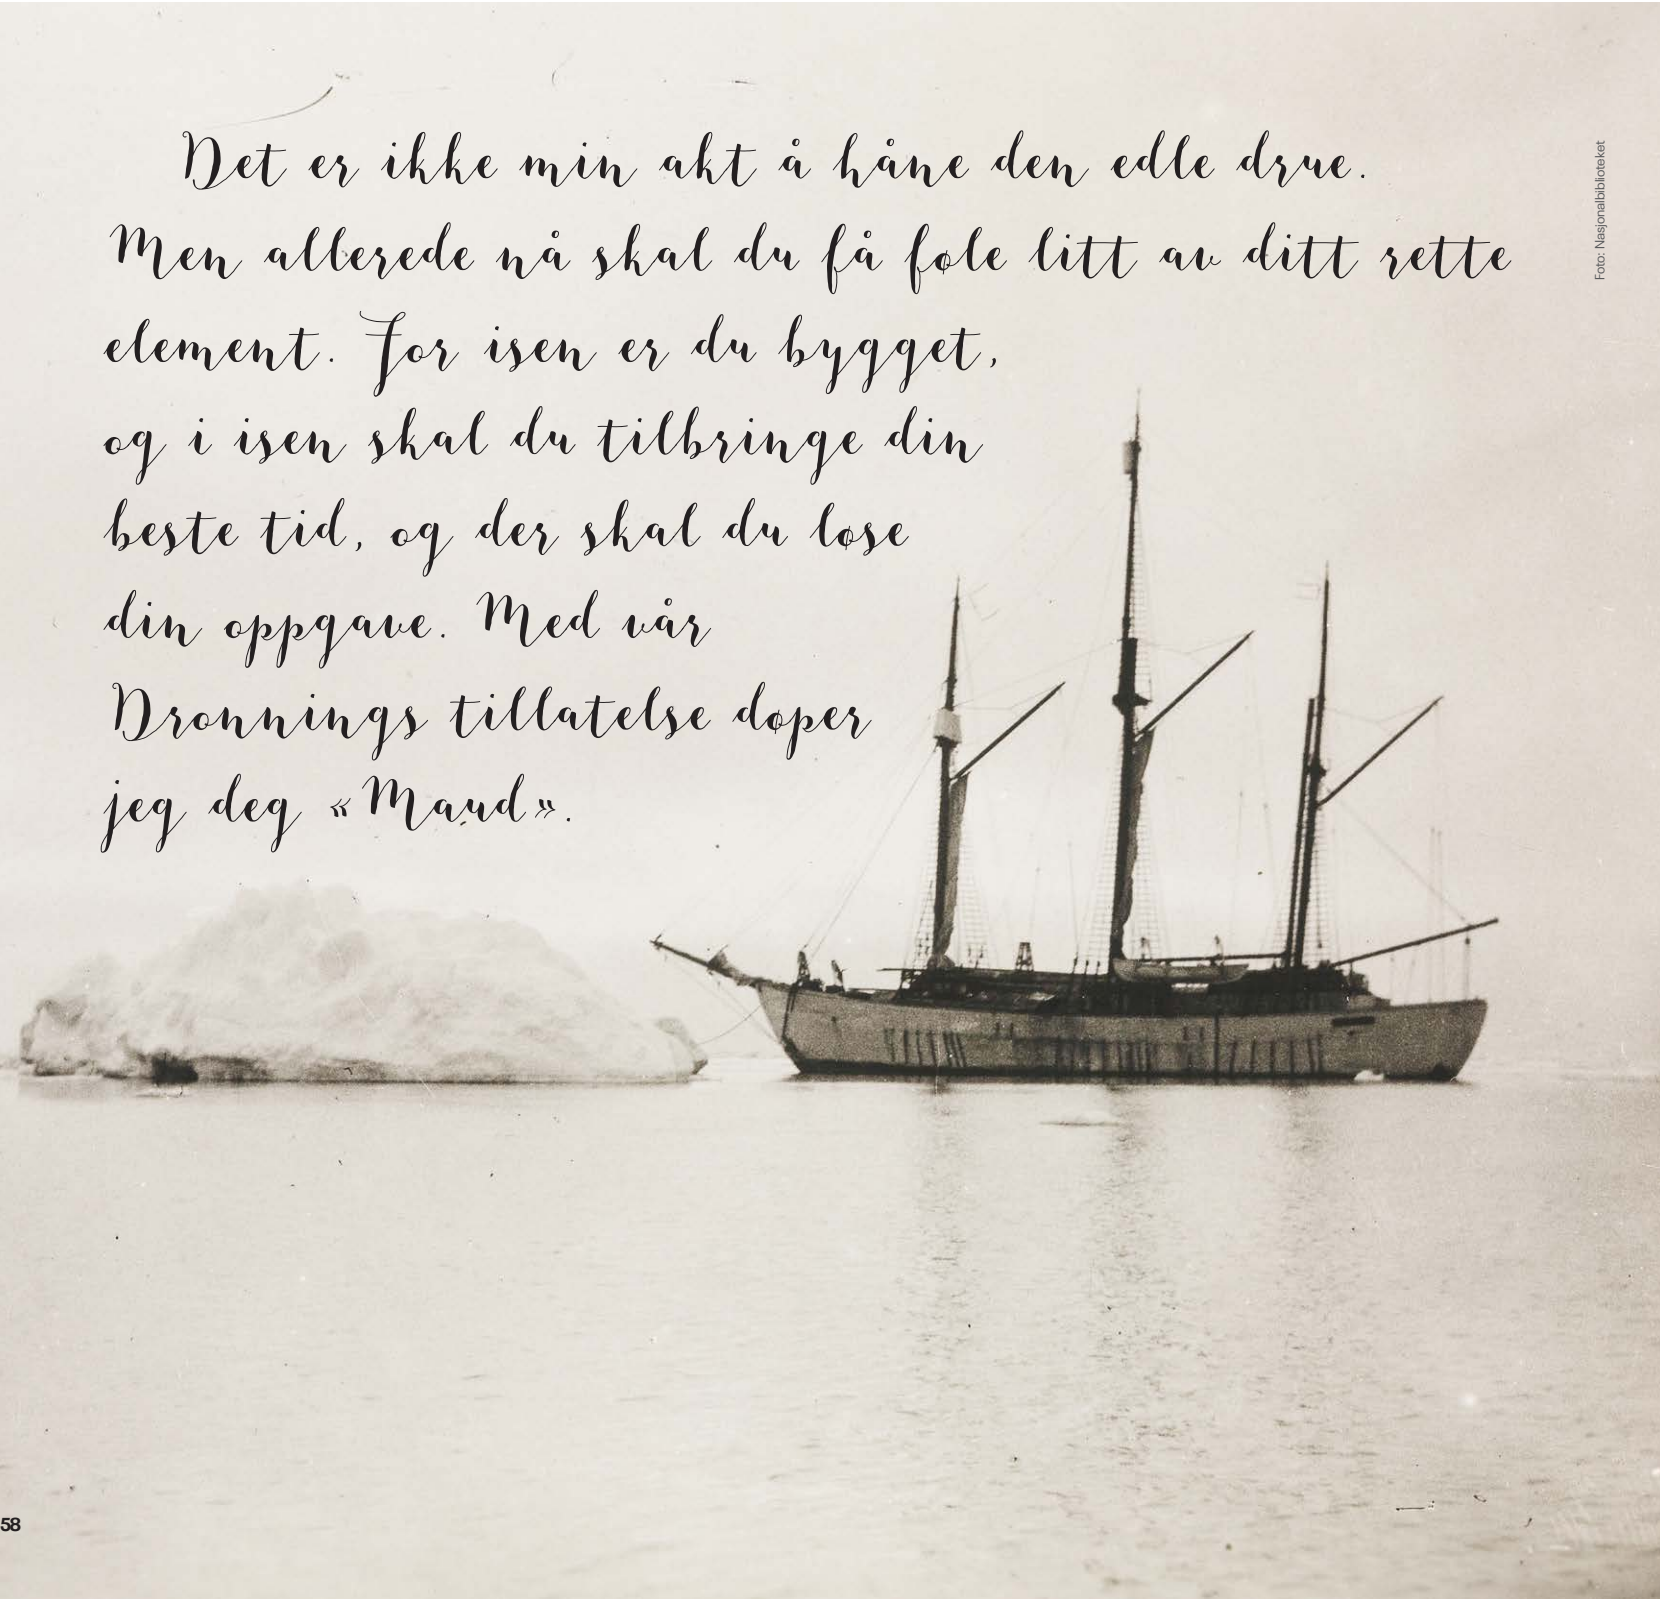 Det er ikke min akt å håne den edle drue.
Men allerede nå skal du få føle litt av ditt rette
element. For isen er du bygget,
og i isen skal du tilbringe din
beste tid, og der skal du løse
din oppgave. Med vår
Dronnings tillatelse døper
jeg deg «Maud».
Foto: Nasjonalbiblioteket
58